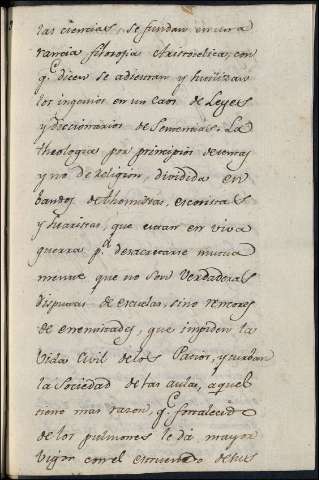 las ciencias, se fundan en una
rancia filosofia Aristotelica, con
q.e dicen se adiestran y sutilizan
los ingenios en un Caos de Leyes
y diccionarios de Sentencias. La
theologia por principios de
y no de religion, dividida en
bandos de thomistas, escotistas
y que estan en viva
guerra p.a desacreditarse mutua
mente, que no son Verdaderas
disputas de escuelas, sino rencores
de enemistades, que impiden la
Vida Civil de los Pacios, y turban
la Sociedad de las aulas, aquel
tiene mas razon, q.e fortalecido
de los pulmones le dá mayor
vigor con el estruendo de sus